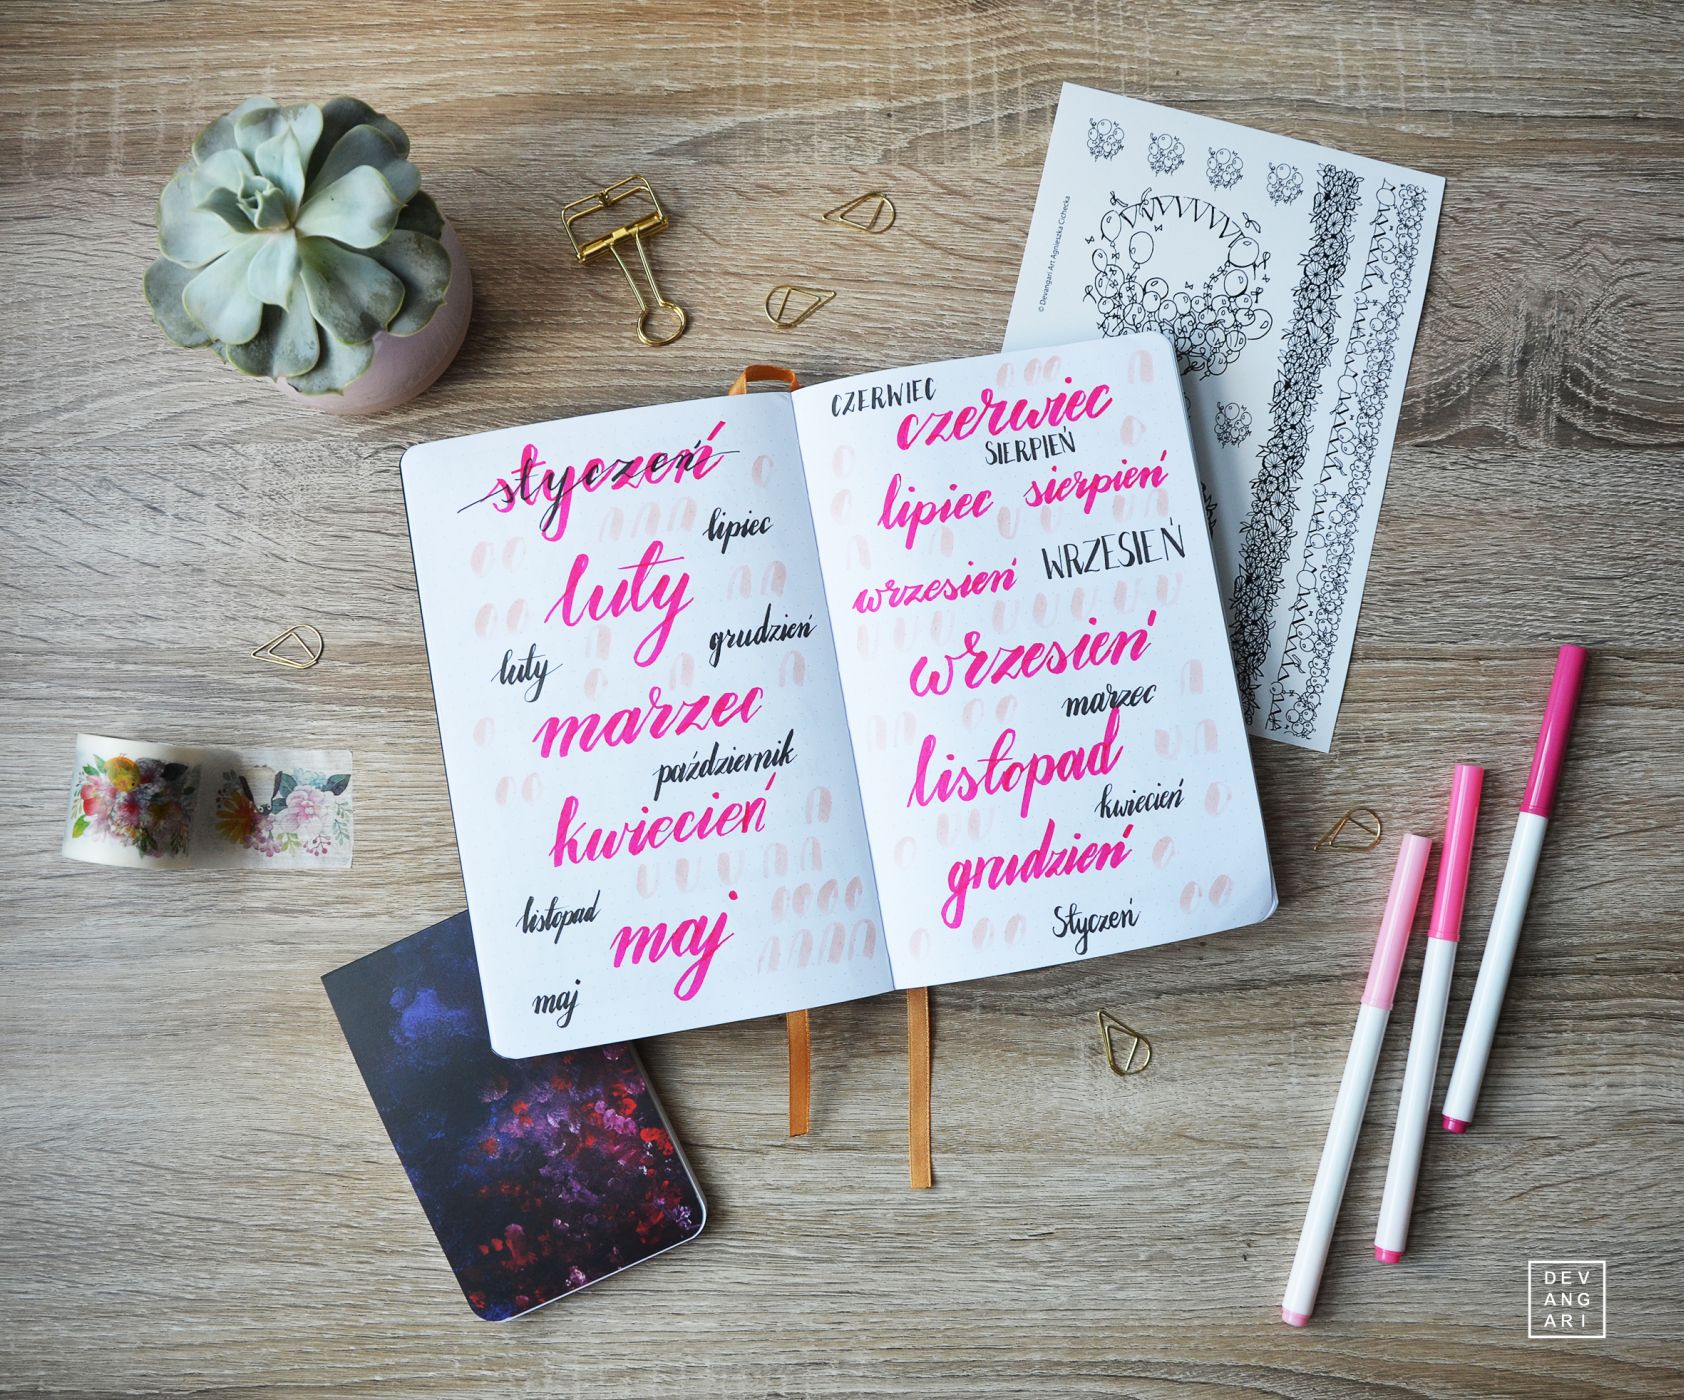 styczeń
styczeń
lipiec
luty
grudzień
luty
marzec
październik
kwiecień
listopad
maj
maj
CZERWIEC
czerwiec
SIERPIEŃ
lipiec sierpień
wrzesień WRZESIEŃ
wrzesień
marzec
listopad
kwiecień
grudzień
Styczeń
© Devangari Art Agnieszka Cichecka
DEV
ANG
ARI